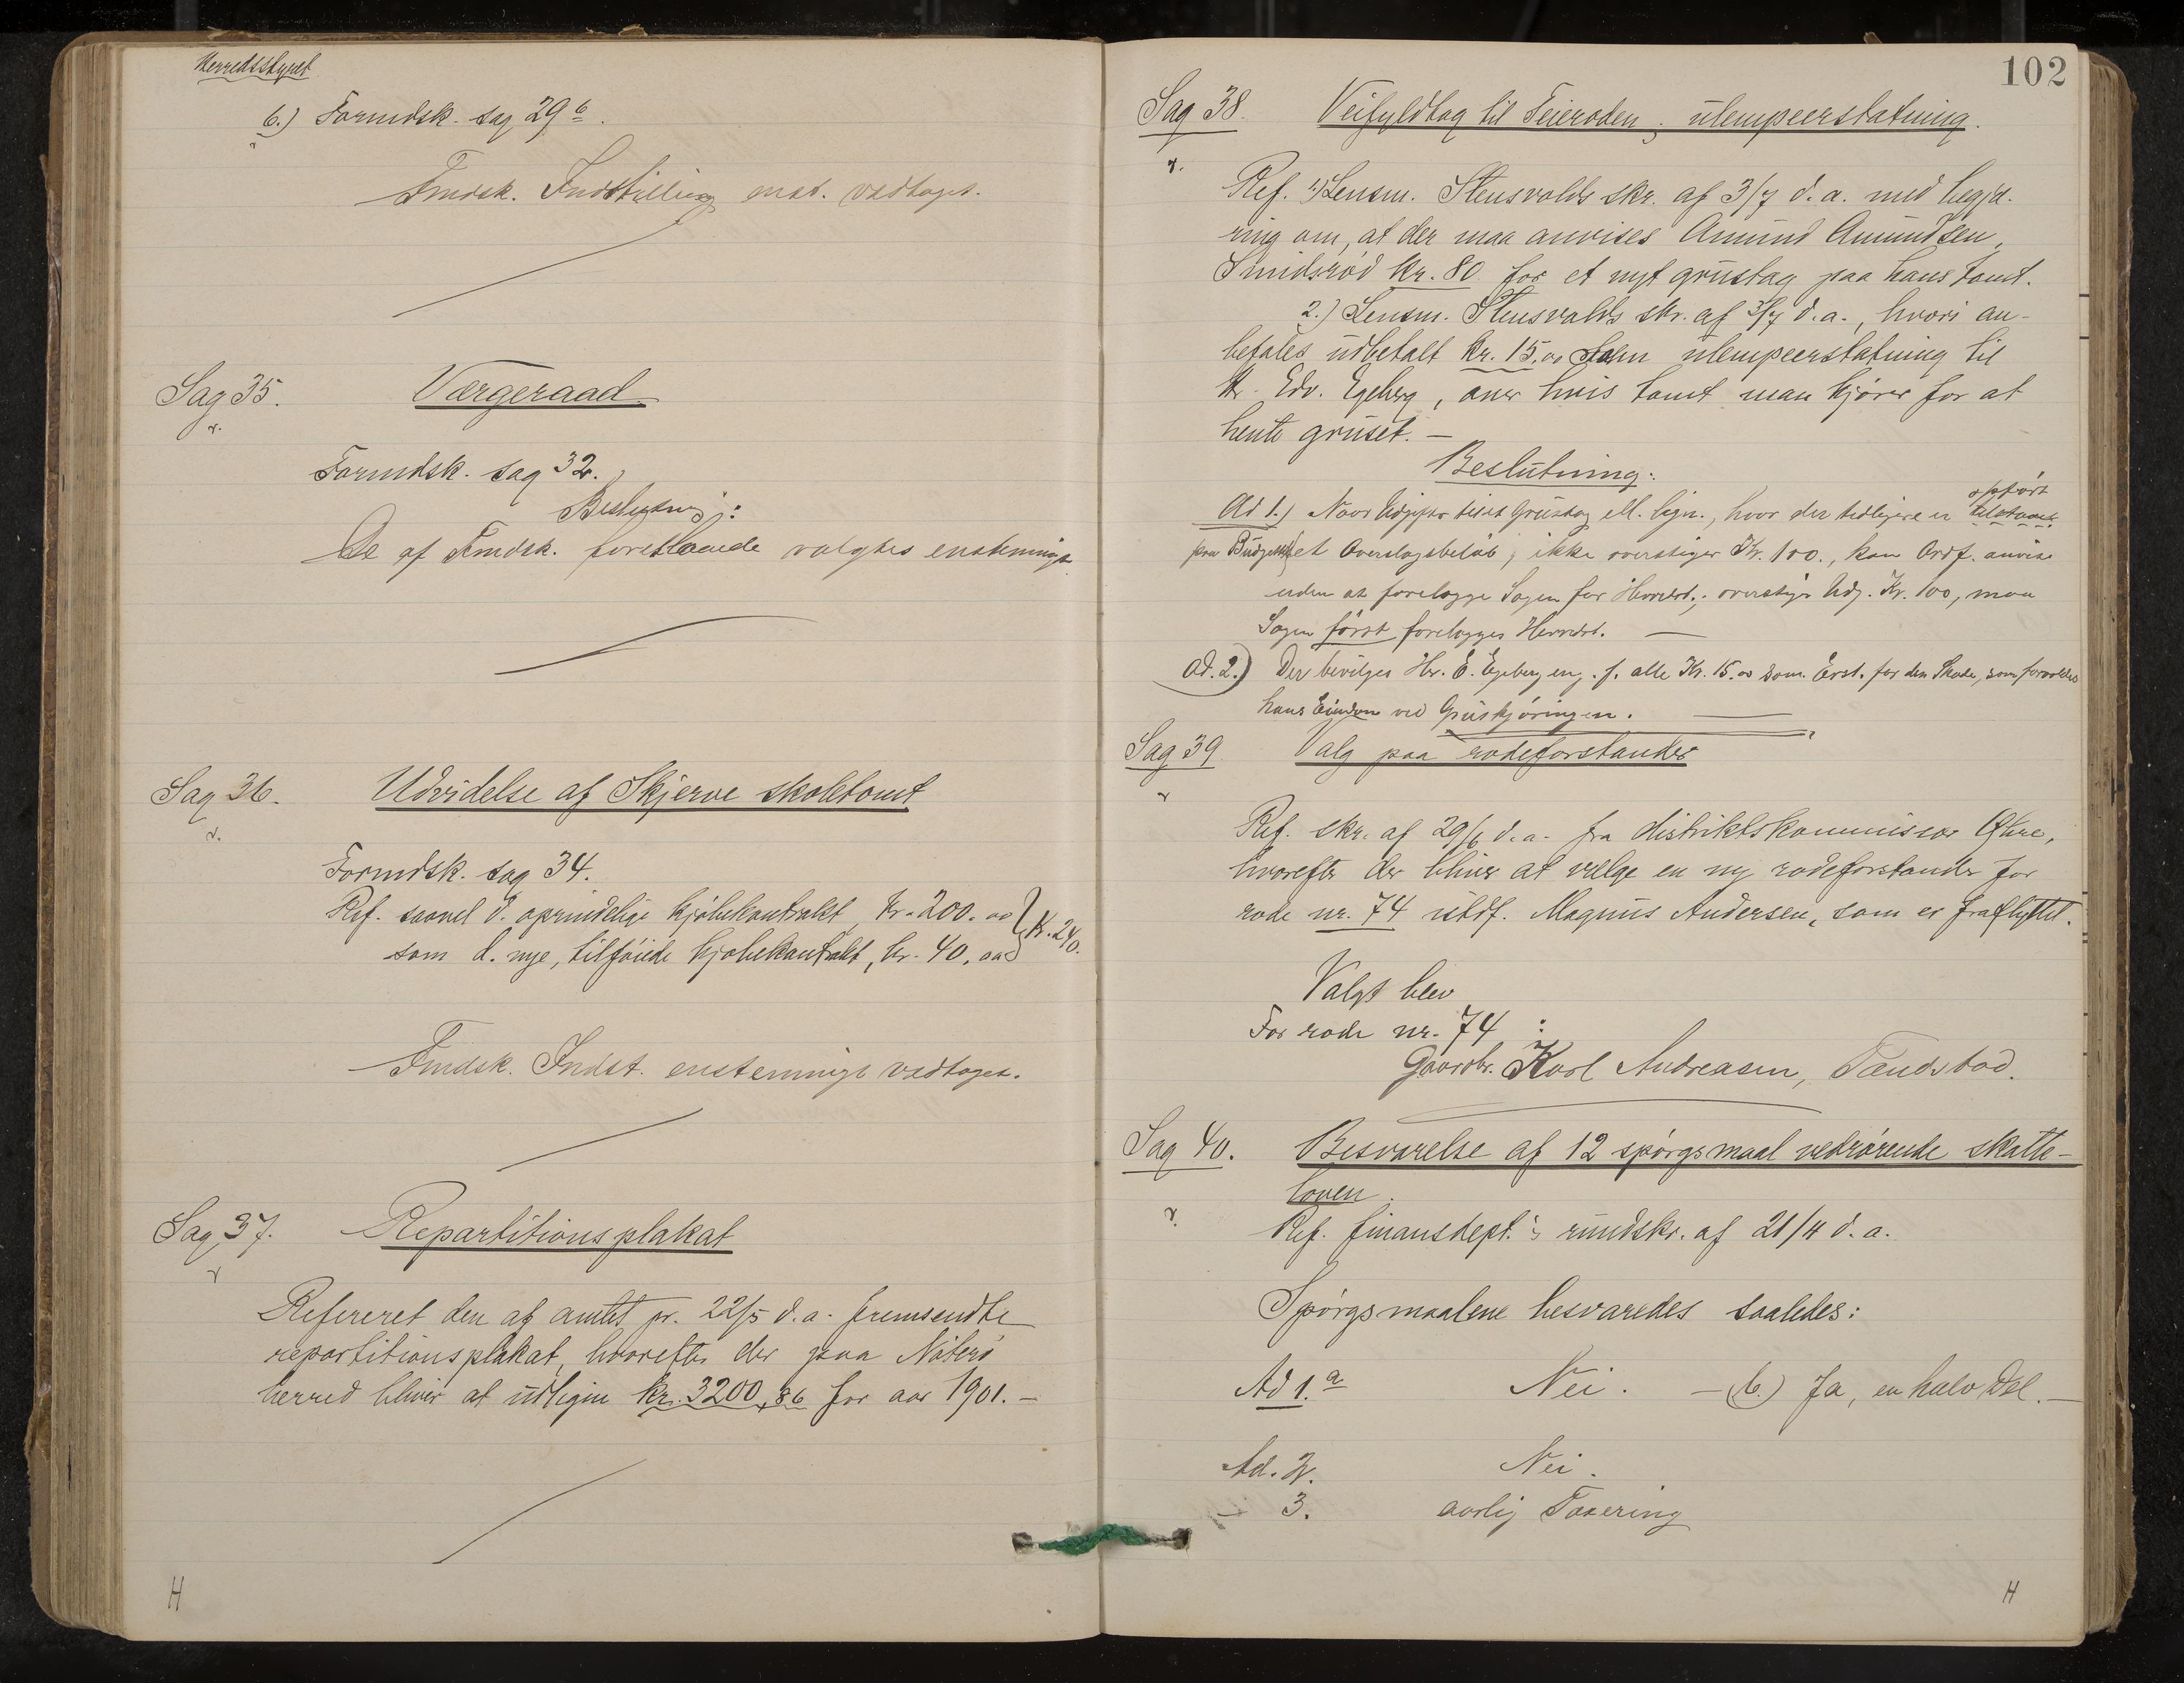 Herredsstyret
6.) Formdsk. sag 29 b.
Fmdsk. Indstilling enst. vedtaget.
Sag 35. Værgeraad
Formdsk. sag 32.
Beslutning:
De af Fmdsk. foreslaaede valgtes enstemmigt.
Sag 36. Udvidelse af Skjerve skoletomt
Formdsk. sag 34.
Ref. saavel d. oprindelige kjøbekontrakt, kr. 200.00
som d. nye, tilføiede kjøbekontrakt, kr. 40.00 } Kr. 240.
Fmdsk. Indst. enstemmigt vedtaget.
Sag 37. Repartitionsplakat
Refereret den af amtet pr. 22/5 d.a. fremsendte
repartitionsplakat, hvorefter der paa Nøterø
herred bliver at udligne kr. 3200,86 for aar 1901. –
H
102
Sag 38. Veifyldtag til Feieroden; ulempeerstatning.
Ref. 1) Lensm. Stensvolds skr. af 3/7 d.a. med begjæ-
ring om, at der maa anvises Amund Amundsen,
Smidsrød kr. 80 for et nyt grustag paa hans tomt.
2.) Lensm. Stensvolds skr. af 3/7 d.a., hvori an-
befales udbetalt kr. 15.00 som ulempeerstatning til
Hr. Edv. Egeberg, over hvis tomt man kjører for at
hente gruset. –
Beslutning:
opført
Ad 1.) Naar Udgifter til et Grustag ell. lign., hvor der tidligere er
paa Budgettet et Overslagsbeløb, ikke overstiger Kr. 100., kan Ordf. anvise
uden at forelægge Sagen for Herredst.; overstiger Udg. Kr. 100, maa
Sagen først forelægges Herredst. –
Ad. 2.) Der bevilges Hr. E. Egeberg eng. f. alle Kr. 15.00 som Erst. for den Skade, som forvoldes
hans Eiendom ved Gruskjøringen. –
Sag 39 Valg paa rodeforstander
Ref. skr. af 29/6 d.a. fra distriktskommissær Øhre,
hvorefter der bliver at vælge en ny rodeforstander for
rode nr. 74 istdf. Magnus Andersen, som er fraflyttet.
Valgt blev
For rode nr. 74 :
Gaardbr. Karl Andreasen, Tandstad.
Sag 40. Besvarelse af 12 spørgsmaal vedrørende skatte-
loven.
Ref. finansdept.'s rundskr. af 21/4 d.a.
Spørgsmaalene besvaredes saaledes:
Ad 1. a Nei. – (b.) Ja, en halv Del. –
Ad. 2. Nei.
– 3. aarlig Taxering
H